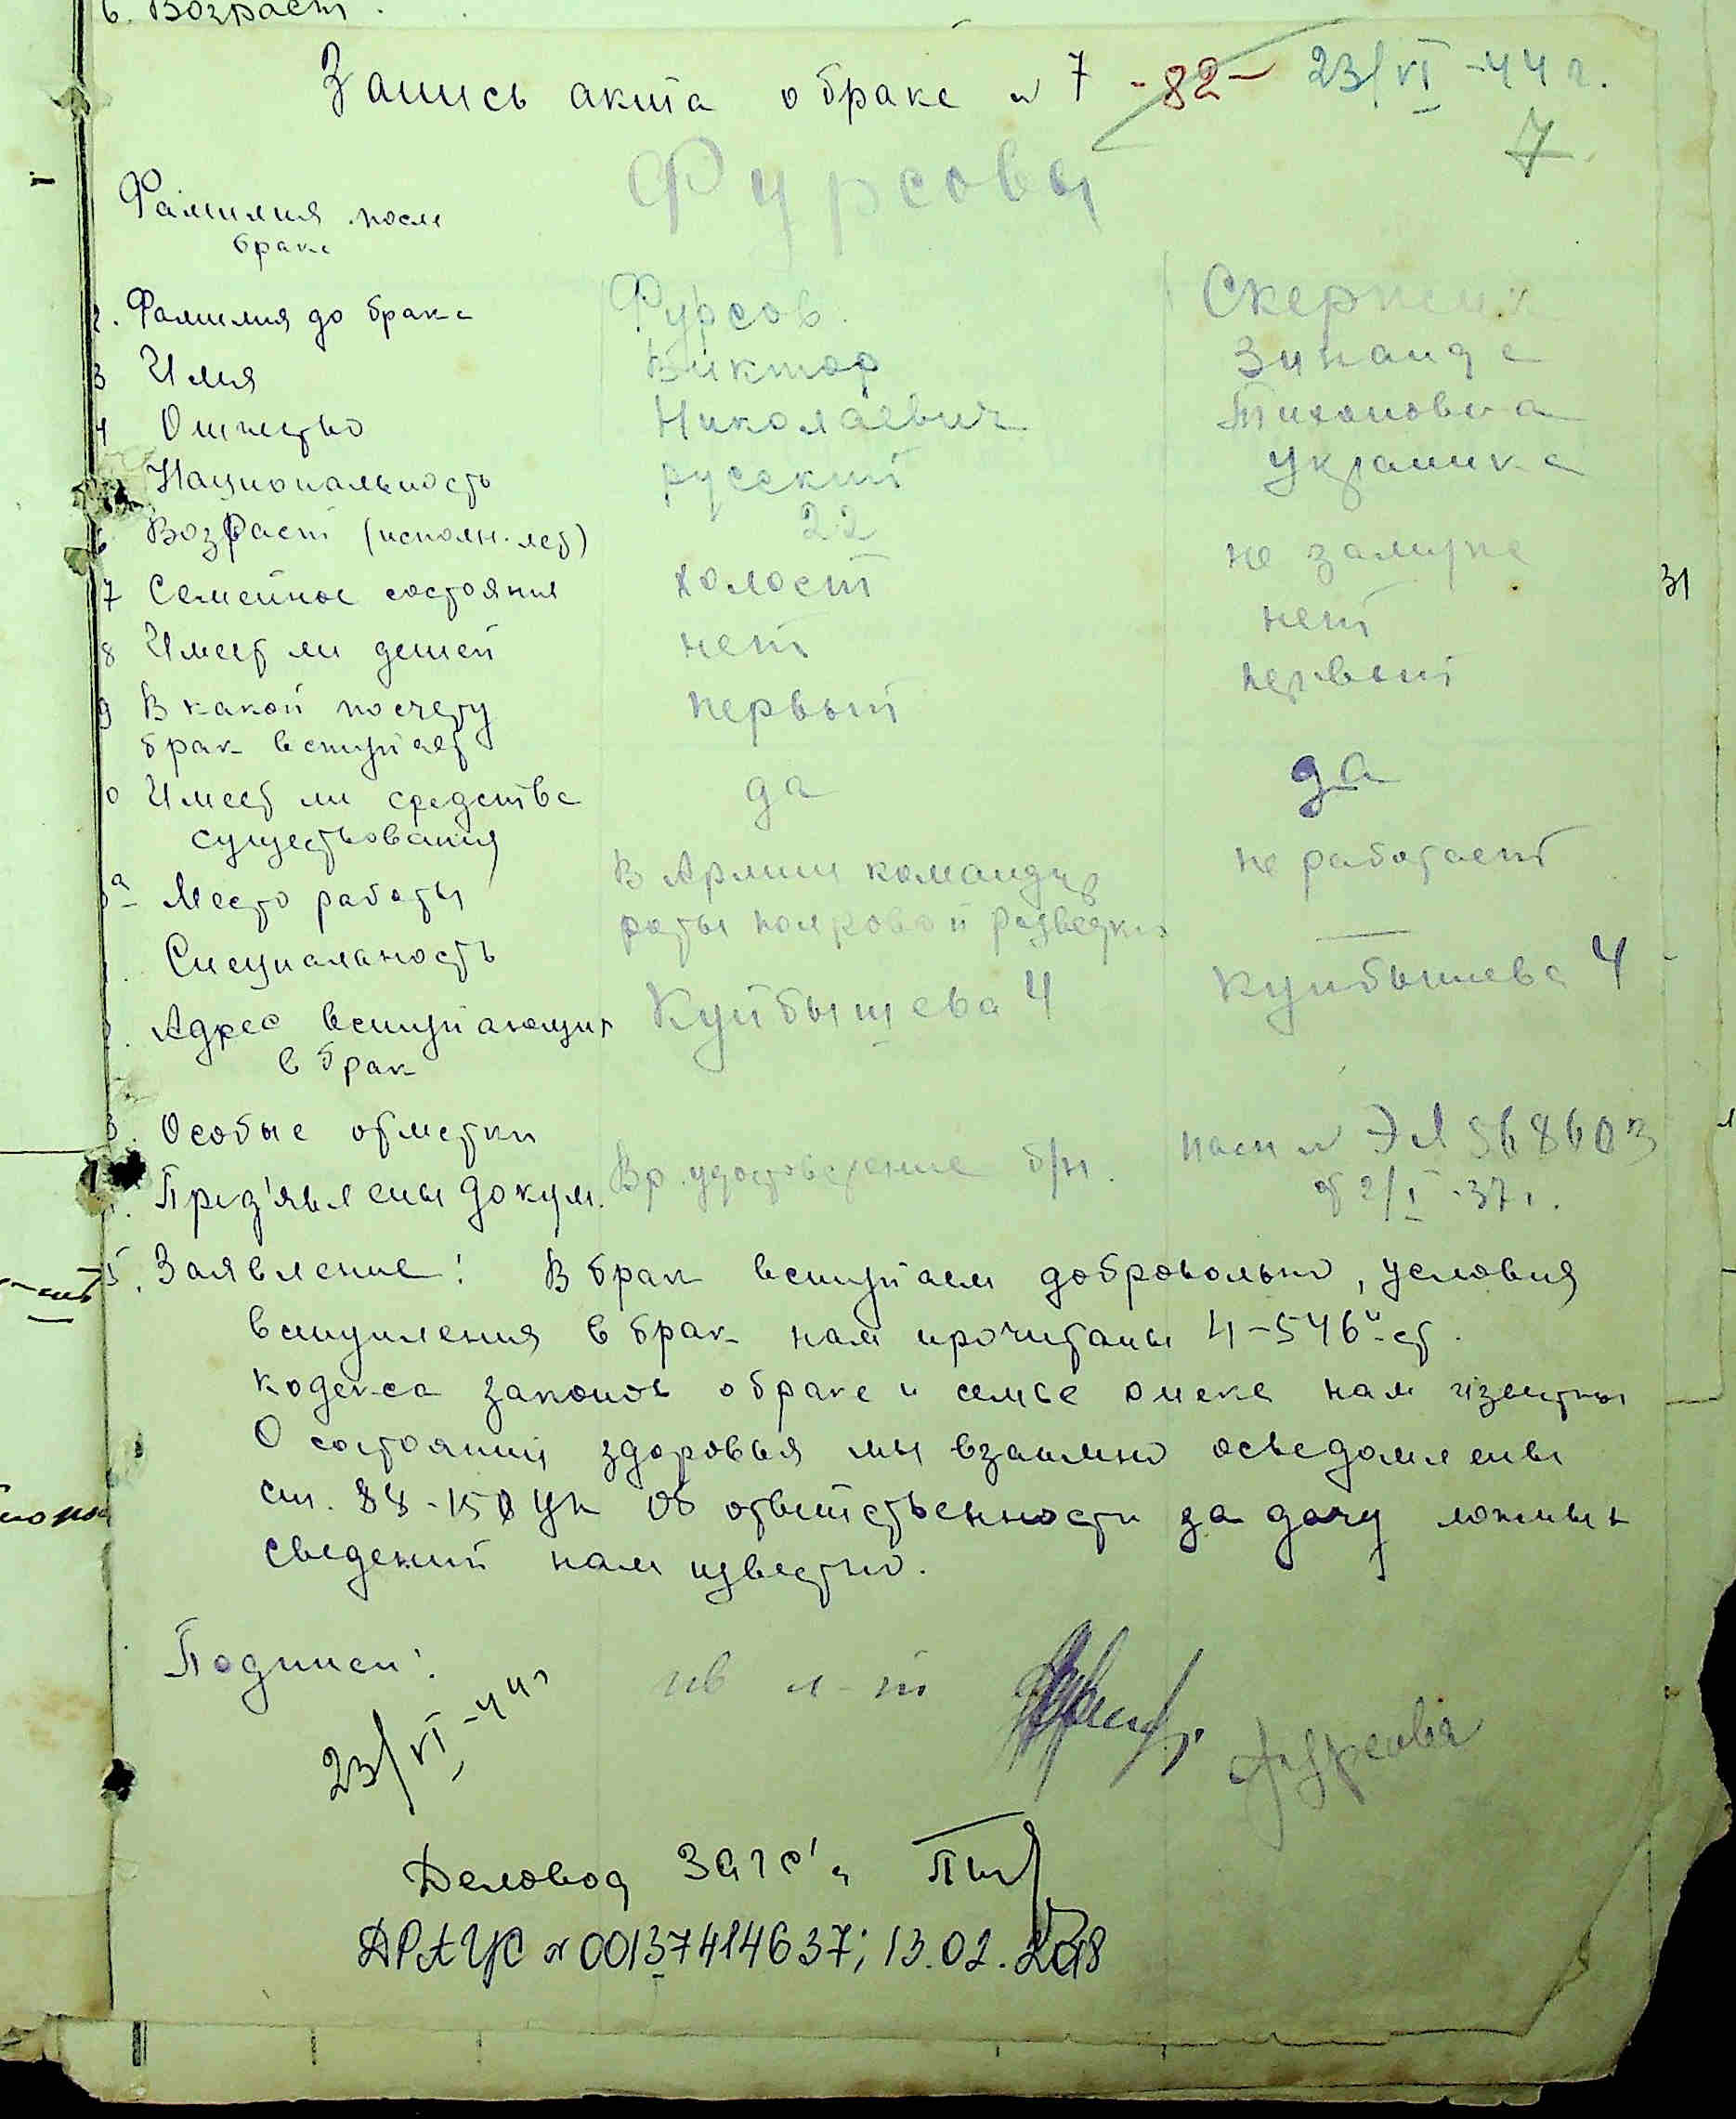 6. Возраст.
Запись акта о браке № 7 -82- 23/VI-44 г.
7
Фамилия после Фурсовы
брака
2. Фамилия до брака Фурсов
3 Имя Виктор Зинаида
4 Отчество Николаевич Тихоновна
Национальность русский украинка
6 Возраст (исполн. лет) 22
7 Семейное состояния холост не замужне
31
8 Имеет ли детей нет нет
9 В какой по счету первый первый
брак вступает
0 Имеет ли средства да да
существования
а Место работы В Армии командир не работает
роты полковой разведки
Специальность —
Адрес вступающих Куйбышева 4 Куйбышева 4
в брак
3. Особые отметки
Пред'явлены докум. Вр. удостоверение б/н. пасп № ЭЛ 568603
от 2/I-37 г.
5. Заявление: В брак вступаем добровольно, условия
вступления в брак нам прочитаны 4-5 и ст.
кодекса законов о браке и семье опеке нам известны
О состоянии здоровья мы взаимно осведомлены
ст. 88-150 УК Об ответственности за дачу ложных
сведений нам известно.
Подписи:
23/VI-44 г
гв л-т Фурсова
Деловод ЗАГС'а
ДРАЦС № 00137414637; 13.02.2018